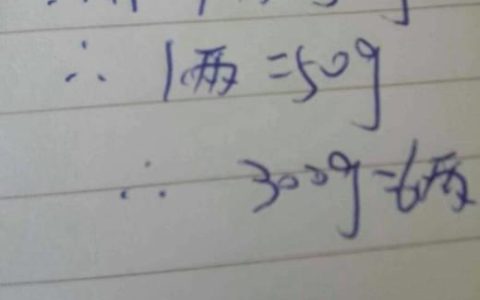 ∴ 1两=50g
∴ 300g=6两